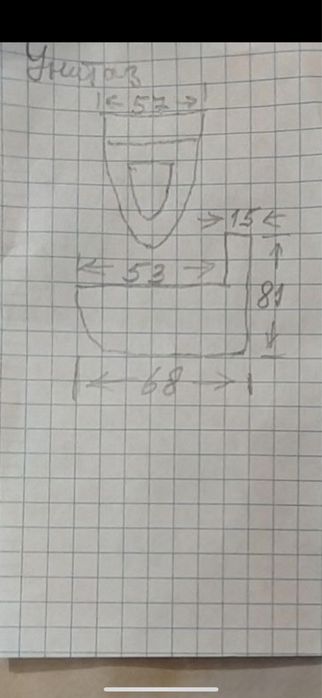 Унитаз
57
15
53
81
68